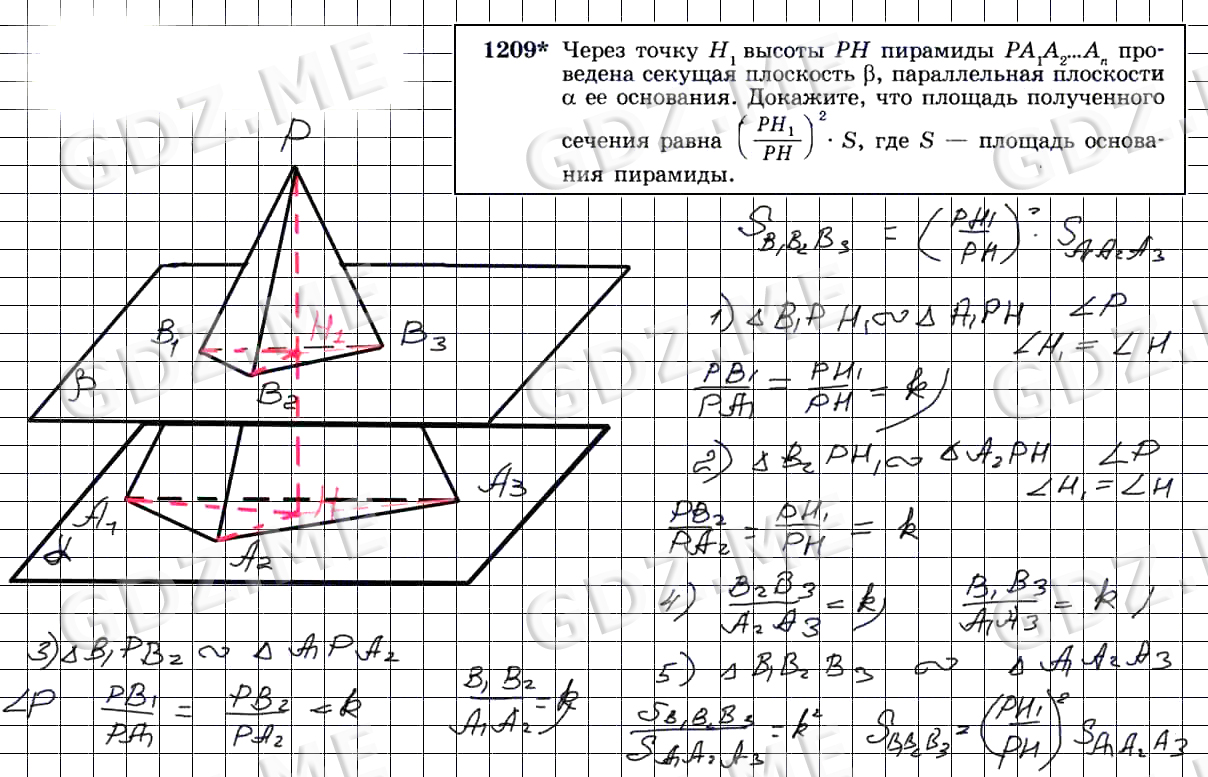 1209* Через точку H₁ высоты PH пирамиды PA₁A₂...Aₙ про-
ведена секущая плоскость β, параллельная плоскости
α ее основания. Докажите, что площадь полученного
сечения равна (PH₁/PH)² · S, где S — площадь основа-
ния пирамиды.
P
B₁
H₁
B₃
β
B₂
A₁
H
A₃
α
A₂
S B₁B₂B₃ = (PH₁/PH)² · S A₁A₂A₃
1) △ B₁PH₁ ∾ △ A₁PH ∠P
∠H₁ = ∠H
PB₁/PA₁ = PH₁/PH = k)
2) △ B₂PH₁ ∾ △ A₂PH ∠P
∠H₁ = ∠H
PB₂/PA₂ = PH₁/PH = k
3) △ B₁PB₂ ∾ △ A₁PA₂
∠P PB₁/PA₁ = PB₂/PA₂ = k B₁B₂/A₁A₂ = k)
4) B₂B₃/A₂A₃ = k) B₁B₃/A₁A₃ = k)
5) △ B₁B₂B₃ ∾ △ A₁A₂A₃
S B₁B₂B₃/S A₁A₂A₃ = k² S B₁B₂B₃ = (PH₁/PH)² S A₁A₂A₃
GDZ.ME
GDZ.ME
GDZ.ME
GDZ.ME
GDZ.ME
GDZ.ME
GDZ.ME
GDZ.ME